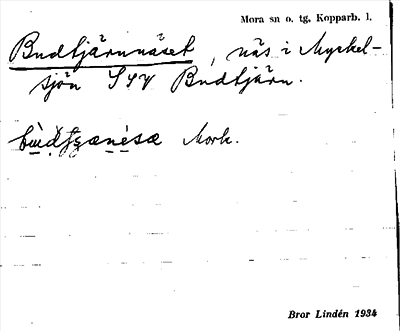 Mora sn o. tg. Kopparb. l.
Budtjärnnäset, näs i Myckel-
sjön SSV Budtjärn.
Mork.
Bror Lindén 1934